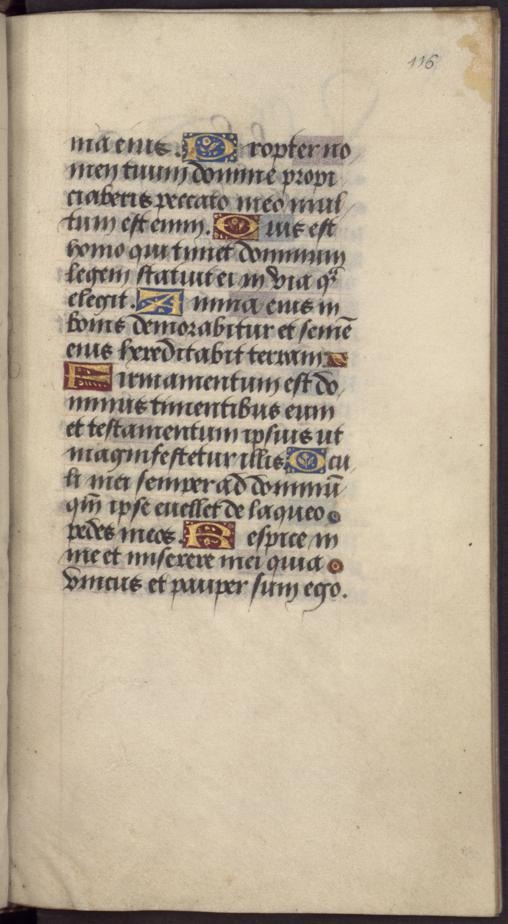 116
ma eius. Propter no
men tuum domine propi
ciaberis peccato meo mul
tum est enim. Quis est
homo qui timet dominum
legem statuit ei in via qͣ
elegit. Anima eius in
bonis demorabitur et semē
eius hereditabit terram
Firmamentum est do
minus timentibus eum
et testamentum ipsius ut
manifestetur illis Ocu
li mei semper ad dominū
qm̄ ipse evellet de laqueo
pedes meos. Respice in
me et miserere mei quia
vnicus et pauper sum ego.